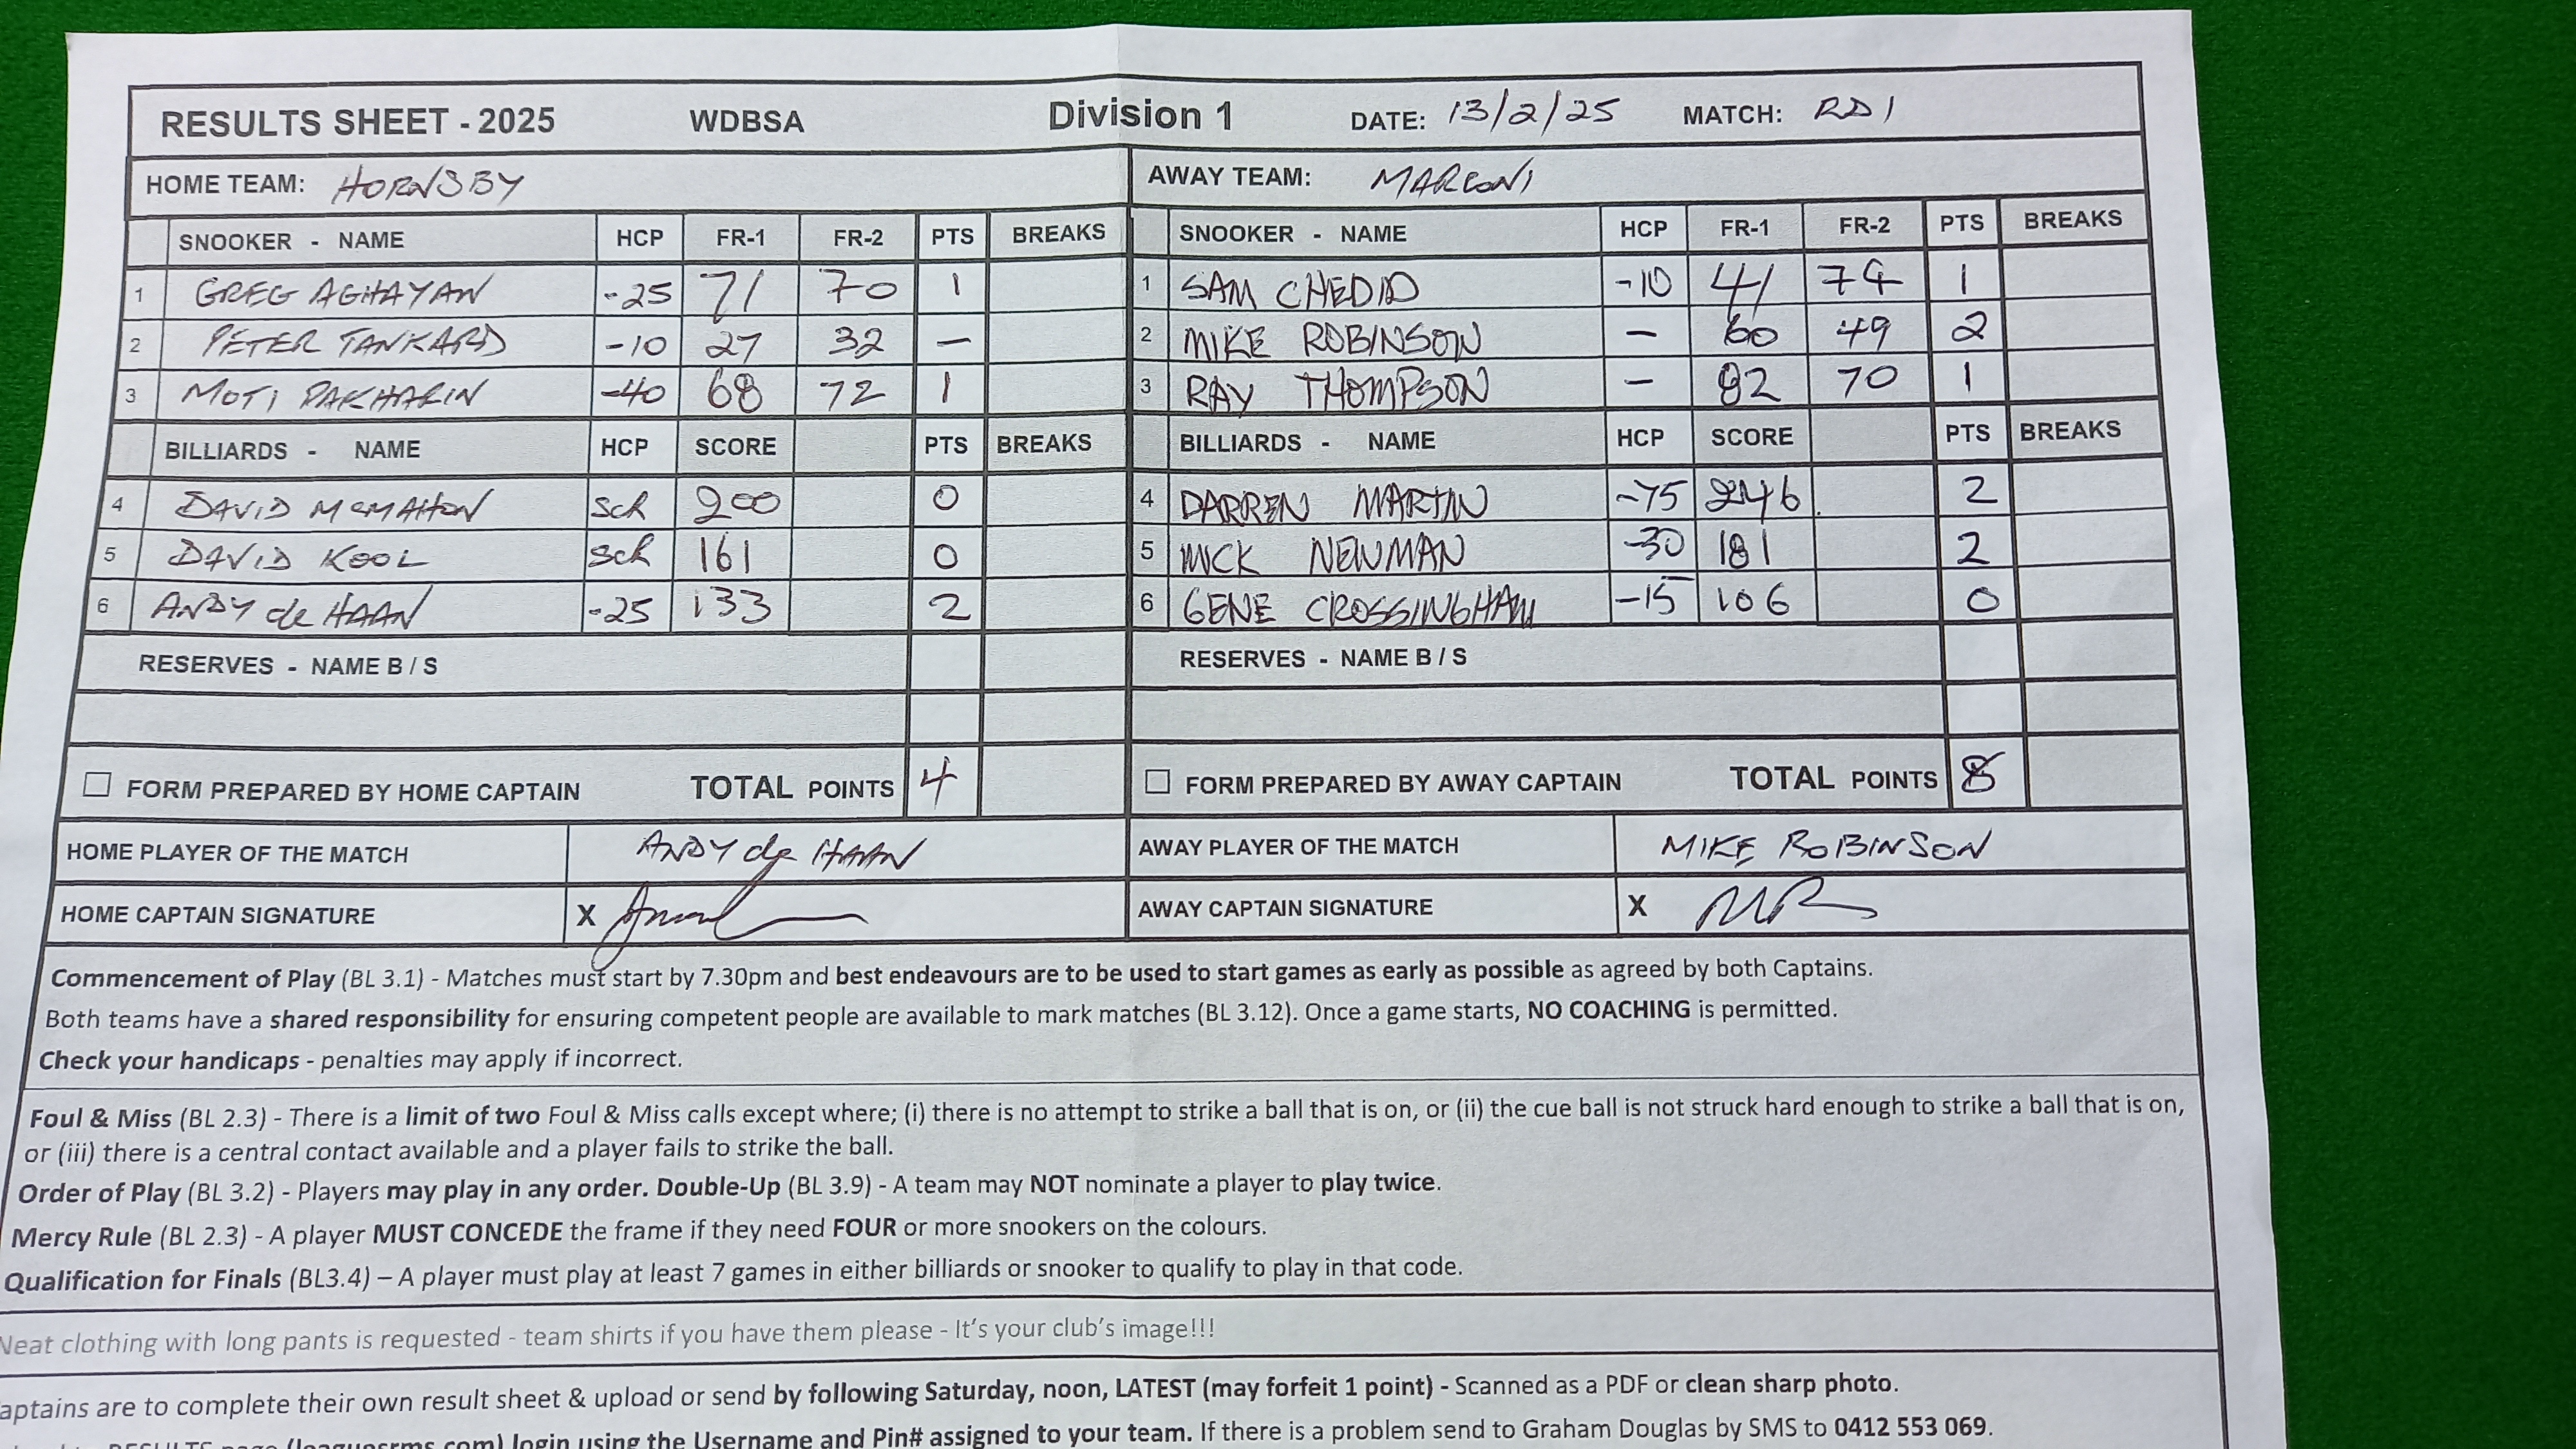 RESULTS SHEET - 2025 WDBSA Division 1 DATE: 13/2/25 MATCH: RD1
HOME TEAM: HORNSBY AWAY TEAM: MARCONI
SNOOKER - NAME HCP FR-1 FR-2 PTS BREAKS SNOOKER - NAME HCP FR-1 FR-2 PTS BREAKS
1 GREG AGHAYAN -25 71 70 1 1 SAM CHEDID -10 41 74 1
2 PETER TANKARD -10 27 32 — 2 MIKE ROBINSON — 60 49 2
3 MOTI -40 68 72 1 3 RAY THOMPSON — 82 70 1
BILLIARDS - NAME HCP SCORE PTS BREAKS BILLIARDS - NAME HCP SCORE PTS BREAKS
4 DAVID McMAHON Sch 200 0 4 DARREN MARTIN -75 246 2
5 DAVID KOOL Sch 161 0 5 MICK NEWMAN -30 181 2
6 ANDY de HAAN -25 133 2 6 GENE CROSSINGHAM -15 106 0
RESERVES - NAME B / S RESERVES - NAME B / S
FORM PREPARED BY HOME CAPTAIN TOTAL POINTS 4 FORM PREPARED BY AWAY CAPTAIN TOTAL POINTS 8
HOME PLAYER OF THE MATCH ANDY de HAAN AWAY PLAYER OF THE MATCH MIKE ROBINSON
HOME CAPTAIN SIGNATURE X AWAY CAPTAIN SIGNATURE X
Commencement of Play (BL 3.1) - Matches must start by 7.30pm and best endeavours are to be used to start games as early as possible as agreed by both Captains.
Both teams have a shared responsibility for ensuring competent people are available to mark matches (BL 3.12). Once a game starts, NO COACHING is permitted.
Check your handicaps - penalties may apply if incorrect.
Foul & Miss (BL 2.3) - There is a limit of two Foul & Miss calls except where; (i) there is no attempt to strike a ball that is on, or (ii) the cue ball is not struck hard enough to strike a ball that is on,
or (iii) there is a central contact available and a player fails to strike the ball.
Order of Play (BL 3.2) - Players may play in any order. Double-Up (BL 3.9) - A team may NOT nominate a player to play twice.
Mercy Rule (BL 2.3) - A player MUST CONCEDE the frame if they need FOUR or more snookers on the colours.
Qualification for Finals (BL3.4) – A player must play at least 7 games in either billiards or snooker to qualify to play in that code.
Neat clothing with long pants is requested - team shirts if you have them please - It's your club's image!!!
aptains are to complete their own result sheet & upload or send by following Saturday, noon, LATEST (may forfeit 1 point) - Scanned as a PDF or clean sharp photo.
login using the Username and Pin# assigned to your team. If there is a problem send to Graham Douglas by SMS to 0412 553 069.